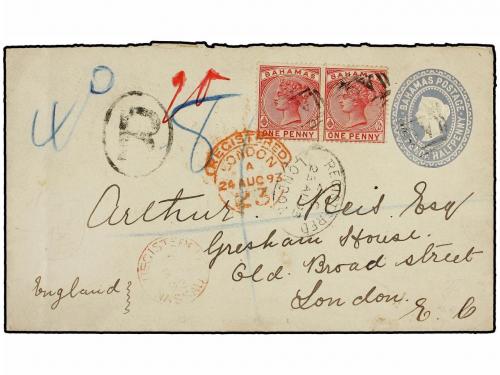 40
R
8
BAHAMAS
ONE PENNY
BAHAMAS
ONE PENNY
BAHAMAS POSTAGE
HALFPENNY
REGISTERED
LONDON
A
24 AUG 93
REGISTERED
LONDON
REGISTERED
NASSAU
Arthur Reis Esq
Gresham House.
Old Broad street
London.
E. C
England